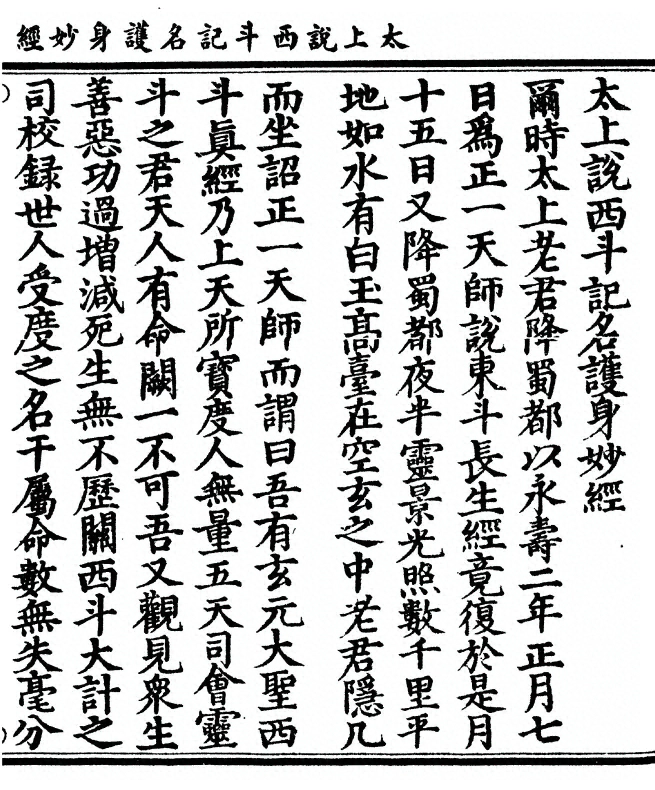 太上說西斗記名護身妙經
太上說西斗記名護身妙經
爾時太上老君降蜀都以永壽二年正月七
日爲正一天師說東斗長生經竟復於是月
十五日又降蜀都夜半靈景光照數千里平
地如水有白玉高臺在空玄之中老君隱几
而坐詔正一天師而謂曰吾有玄元大聖西
斗眞經乃上天所寶度人無量五天司會靈
斗之君天人有命闕一不可吾又觀見衆生
善惡功過增減死生無不歷關西斗大計之
司校録世人受度之名干屬命數無失毫分